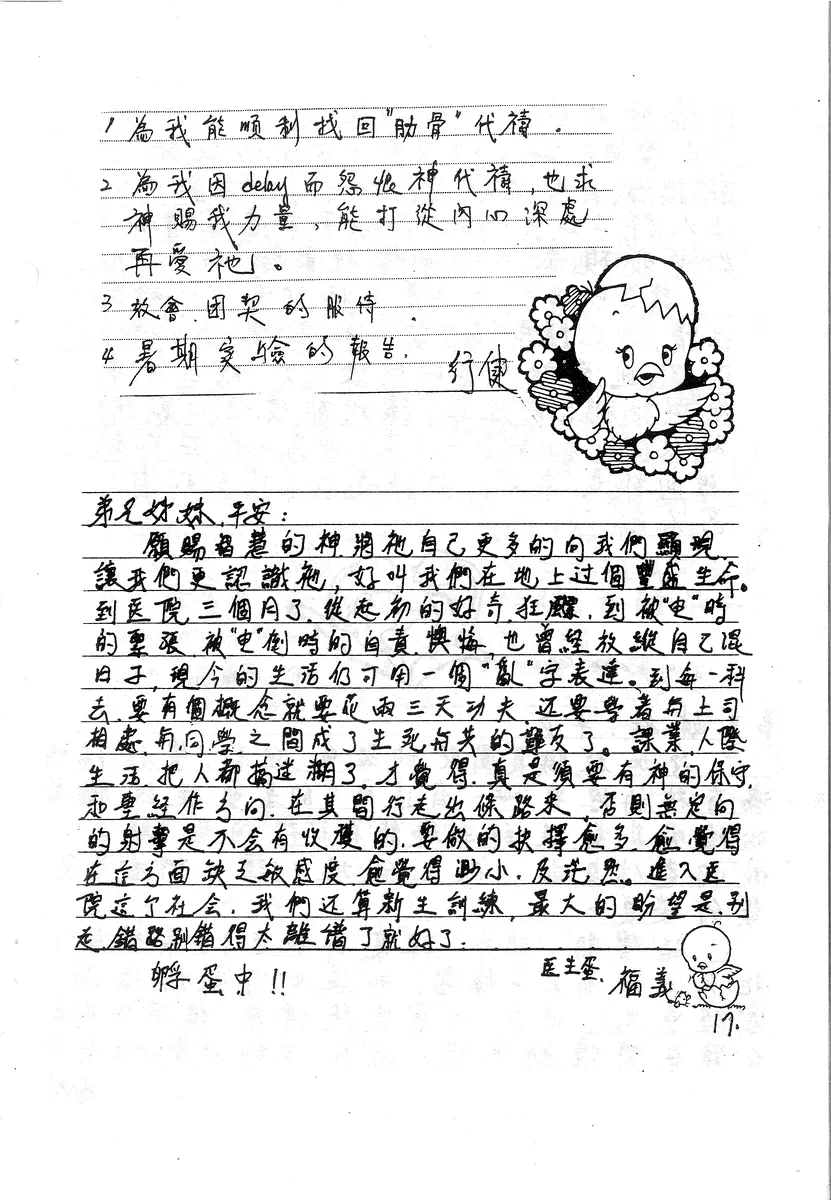 1 為我能順利找回"肋骨"代禱。
2 為我因delay而怨恨神代禱,也求
神賜我力量,能打從內心深處
再愛祂。
3 教會.团契的服侍.
4 暑期实驗的報告.
行健
弟兄姊妹,平安:
願賜智慧的神,將祂自己更多的向我們顯現,
讓我們更認識祂,好叫我們在地上过個豐盛生命。
到医院三個月了,從起初的好奇.狂飆,到被"电"時
的緊張,被"电"倒時的自責.懊悔,也曾经放縱自己混
日子,現今的生活仍可用一個"亂"字表達。到每一科
去,要有個概念就要花兩三天功夫,还要學著与上司
相處,与同學之間成了生死与共的難友了。課業,人際
生活,把人都搞迷湖了。才覺得,真是須要有神的保守,
和聖经作方向,在其間行走出條路來,否則無定向
的射擊是不会有收獲的.要做的抉擇愈多,愈覺得
在這方面缺乏敏感度,愈覺得渺小,及茫然。進入医
院這个社会,我們还算新生訓練,最大的盼望是,別
走錯路別錯得太離譜了就好了.
孵蛋中!!
医生蛋.福義
17.